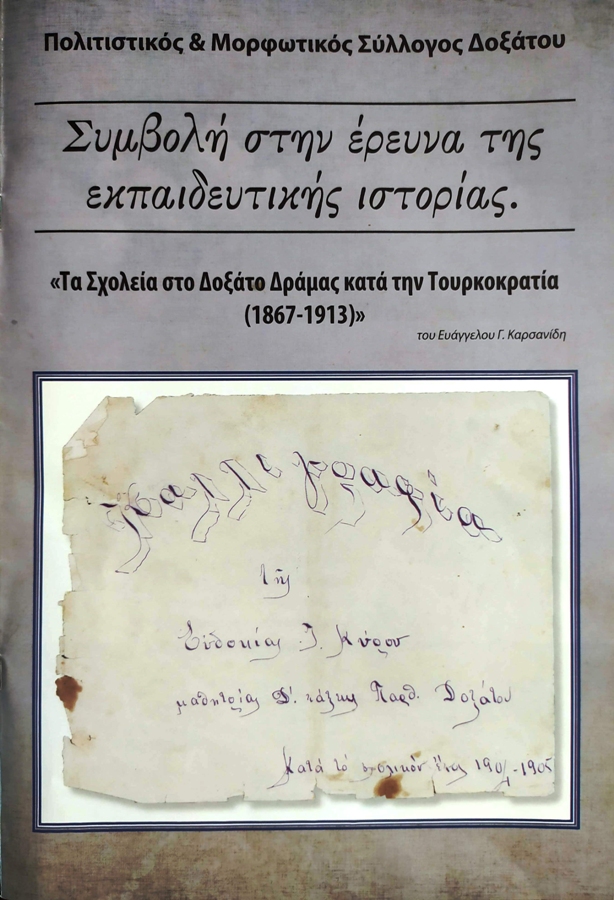 Πολιτιστικός & Μορφωτικός Σύλλογος Δοξάτου
Συμβολή στην έρευνα της
εκπαιδευτικής ιστορίας.
«Τα Σχολεία στο Δοξάτο Δράμας κατά την Τουρκοκρατία
(1867-1913)»
του Ευάγγελου Γ. Καρσανίδη
Καλλιγραφία
τῆς
Εὐδοκίας Ι. Κύρου
μαθητρίας Δ'. τάξεως Παρθ. Δοξάτου
Κατὰ τὸ σχολικὸν ἔτος 1904-1905